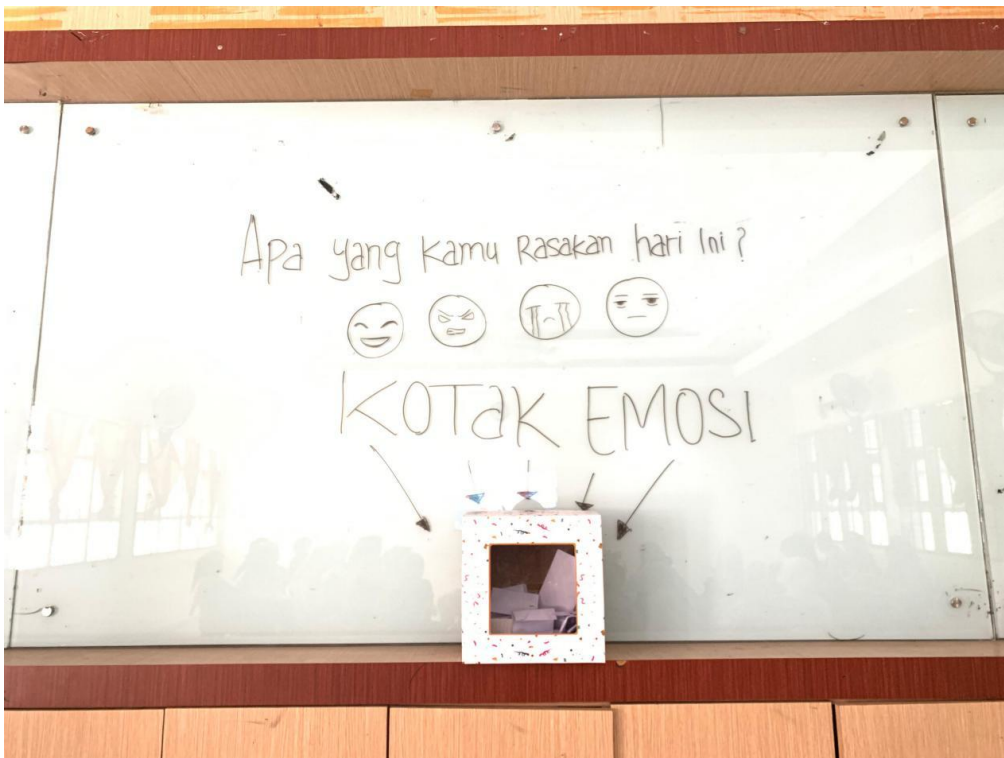 Apa yang kamu Rasakan hari Ini?
KOTak EMOSI